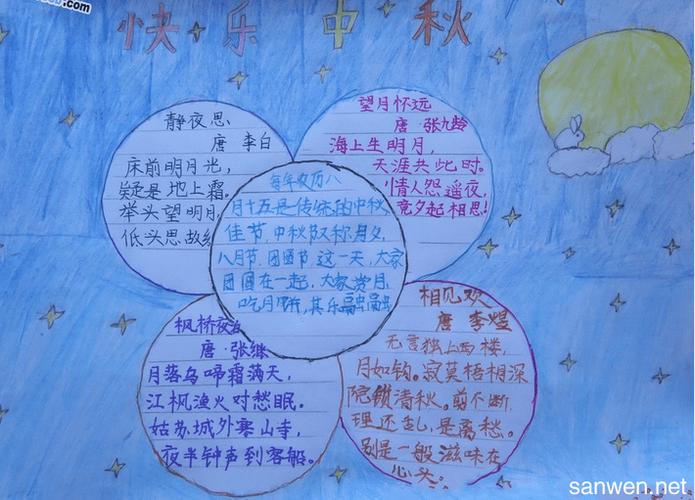 .com
快乐中秋
静夜思
唐 李白
床前明月光，
疑是地上霜。
举头望明月，
低头思故
望月怀远
唐·张九龄
海上生明月，
天涯共此时。
情人怨遥夜，
竟夕起相思！
每年农历八
月十五是传统的中秋
佳节，中秋节又称月夕，
八月节、团圆节，这一天，大家
团圆在一起，大家赏月，
吃月饼，其乐融融
枫桥夜泊
唐·张继
月落乌啼霜满天，
江枫渔火对愁眠。
姑苏城外寒山寺，
夜半钟声到客船。
相见欢
唐 李煜
无言独上西楼，
月如钩。寂寞梧桐深
院锁清秋。剪不断，
理还乱，是离愁。
别是一般滋味在
心头。
sanwen.net